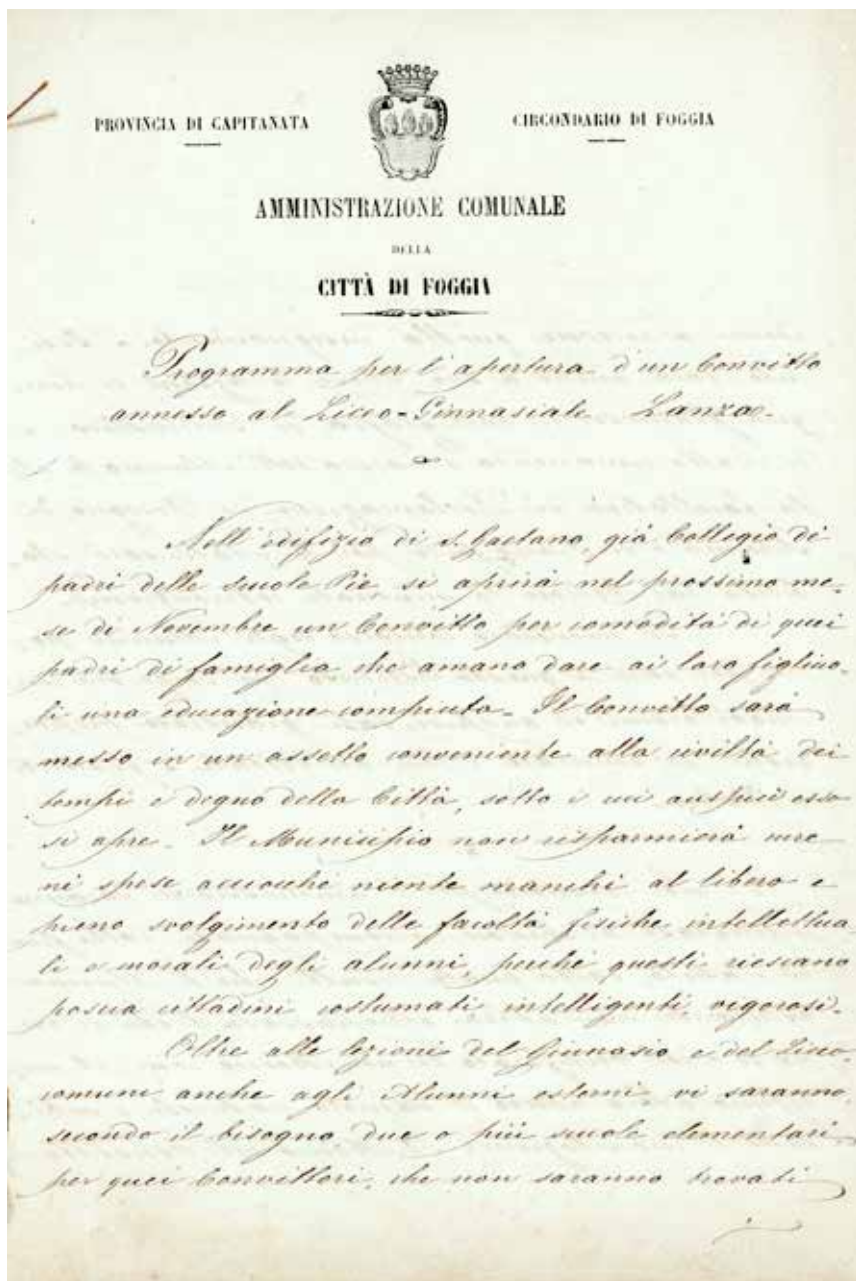 PROVINCIA DI CAPITANATA
CIRCONDARIO DI FOGGIA
AMMINISTRAZIONE COMUNALE
DELLA
CITTÀ DI FOGGIA
Programma per l'apertura d'un Convitto
annesso al Liceo=Ginnasiale Lanza.
Nell'edifizio di S. Gaetano, già Collegio de'
padri delle scuole Pie, si aprirà nel prossimo me-
se di Novembre un Convitto per comodità di quei
padri di famiglia che amano dare ai loro figliuo-
li una educazione compiuta. Il Convitto sarà
messo in un assetto conveniente alla civiltà dei
tempi e degno della Città, sotto i cui auspici esso
si apre. Il Municipio non risparmierà cure
nè spese acciocchè niente manchi al libero e
pieno svolgimento delle facoltà fisiche intellettua
li e morali degli alunni, perchè questi riescano
poscia cittadini costumati intelligenti, vigorosi.
Oltre alle lezioni del Ginnasio e del Liceo,
comuni anche agli Alunni esterni, vi saranno,
secondo il bisogno, due o più scuole elementari
per quei Convittori, che non saranno trovati